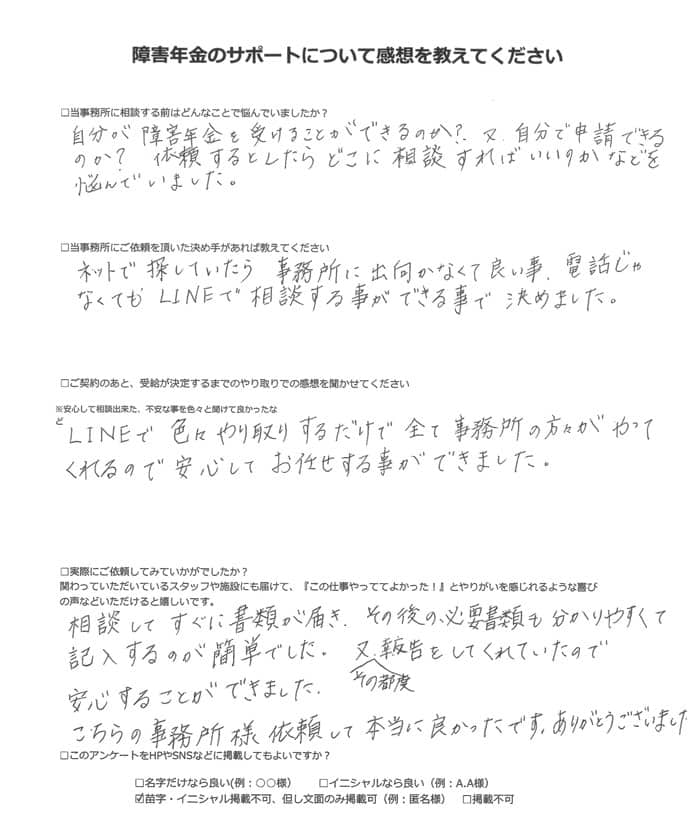 障害年金のサポートについて感想を教えてください
□当事務所に相談する前はどんなことで悩んでいましたか？
自分が障害年金を受けることができるのか？又、自分で申請できる
のか？依頼するとしたらどこに相談すればいいのかなどを
悩んでいました。
□当事務所にご依頼を頂いた決め手があれば教えてください
ネットで探していたら事務所に出向かなくて良い事、電話じゃ
なくてもLINEで相談する事ができる事で決めました。
□ご契約のあと、受給が決定するまでのやり取りでの感想を聞かせてください
※安心して相談出来た、不安な事を色々と聞けて良かったな
ど
LINEで色々やり取りするだけで全て事務所の方々がやって
くれるので安心してお任せする事ができました。
□実際にご依頼してみていかがでしたか？
関わっていただいているスタッフや施設にも届けて、『この仕事やっててよかった！』とやりがいを感じれるような喜び
の声などいただけると嬉しいです。
相談してすぐに書類が届き、その後の、必要書類も分かりやすくて
記入するのが簡単でした。又、報告をしてくれていたので
その都度
安心することができました。
こちらの事務所様依頼して本当に良かったです。ありがとうございました
□このアンケートをHPやSNSなどに掲載してもよいですか？
□名字だけなら良い(例：○○様) □イニシャルなら良い（例：A.A様）
☑苗字・イニシャル掲載不可、但し文面のみ掲載可（例：匿名様） □掲載不可